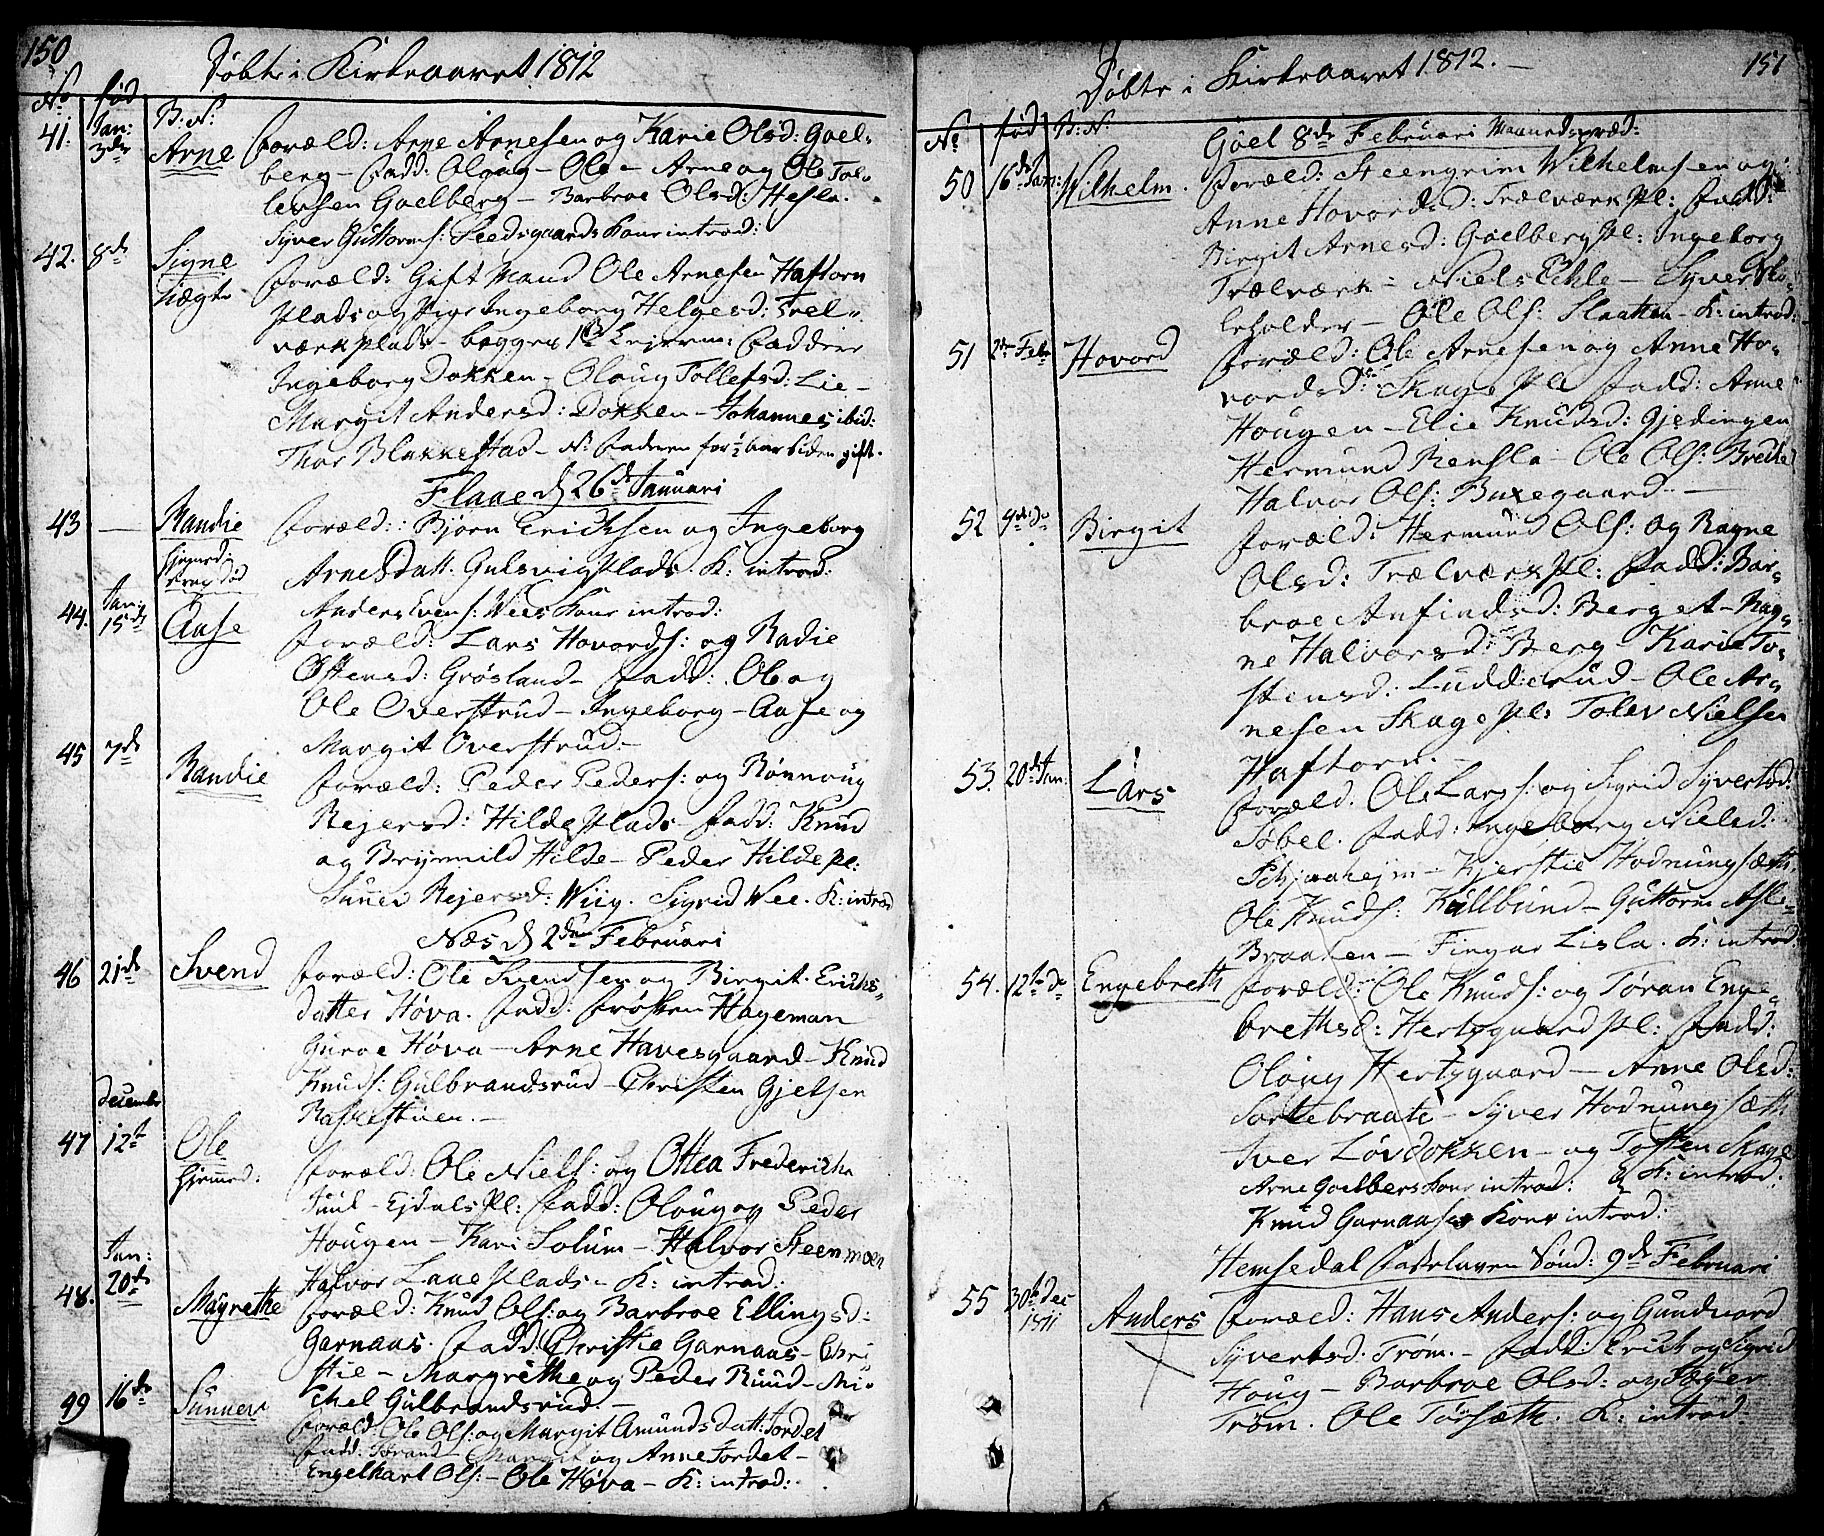 150
Døbte i Kirkeaaret 1812
No fød B: N:
41. Jan: 3de Arne Foræld: Arne Arnesen og Karie Olsd: Goel-
berg - Fadd: Oloug - Ole - Arne og Ole Tol-
lersen Goelberg - Barbroe Olsd: Hesla.
Syver Guttorms: Leedsgaards Kone introd:
42. 8de Signe Foræld: Gift Mand Ole Arnesen Haftorn
uægte plads og Pige Ingeborg Helgesd: Trel-
værkplads - begges 1ste Leierm: Faddere
Ingeborg Dokken - Oloug Tollefsd: Lie -
Margit Andersd: Dokken - Johannes ibid:
Thor Blakkestad - NB Faderen for 1/2 aar siden gift.
Flaae d 26de Januari
43 — Randie Foræld: Bjørn Ericksen og Ingeborg
hjemd: Arnes Datt. Gulsvigplads. K: introd:
død
Anders Svens: Wees Kone introd:
44. Jan: 15de Aase Foræld: Lars Hovords: og Radie
Østensd: Grøsland - Fadd: Ole og
Ole Overstrud - Ingeborg - Aase og
Margit Overstrud -
45 7de Randie Foræld: Peder Peders: og Rønnoug
Rejersd: Hildeplads - Fadd: Knud
og Brynnild Hilde - Peder Hilde pl:
Sunev Rejersd: Wiig. Sigrid Wee. K: introd
Næs d 2den Februari
46 21de Svend Foræld: Ole Svendsen og Birgit Ericks-
datter Høva. Fadd: Frøken Hageman
Guroe Høva - Arne Havesgaard - Knud
Knuds: Gulbrandsrud - Christen Gjelsen
December
47 12t Ole Foræld: Ole Niels: og Ottea Fredericha
hjemd: Juul - Ejdals pl: Fadd: Oloug og Peder
Hougen - Kari Solum - Halvor Steenmoen
Halvor Laaeplads - K: introd:
48. Jan: 20de Magrethe Foræld: Knud Ols: og Barbroe Ellingsd-
Garnaas. Fadd: Christie Garnaas - Chri-
stie - Margrethe og Peder Ruud - Mi-
chel Gulbrandsrud. -
49 16de Sunnev Foræld: Ole Ols: og Margit Amunds Datt: Jordet
Fadd: Margit og Anne Jordet -
Engelhart Ols: - Ole Høva - K: introd:
151
Døbte i Kirkeaaret 1812. -
No fød B: N:
Goel 8de Februari Maanedspræd:
50 16de Jan: Wilhelm. Foræld: Steengrim Wilhelmsen og
Anne Hovordsd: Trælværk pl: Fadd:
Birgit Arnesd: Goelberg pl: Ingeborg
Trælværk - Niels Eckle - Syver Sko-
leholder - Ole Ols: Slaatten - K: introd:
51 2den Febr Hovord Foræld: Ole Arnesen og Anne Ho-
vordsd: Skage pl: Fadd: Anne
Hougen - Elie Knudsd: Gjedingen
Hermund Rensla - Ole Ols: Brecke
Halvor Ols: Buxegaard. —
52 4de do Birgit Foræld: Hermund Ols: og Ragne
Olsd: Trælværk pl: Fadd: Bar-
broe Anfindsd: Berget - Rag-
ne Halvorsd: Berg - Karie To-
stensd: Ludderud - Ole Ar-
nesen Skage pl: Tolev Nielsen
Haftorn. -
53. 20de Jan. Lars Foræld: Ole Lars: og Sigrid Syvertsd:
Søbel. Fadd: Ingeborg Nielsd:
Schjaahejm - Kjerstie Hodnungsæth
Ole Knuds: Kullbund - Guttorm Asle-
Braaten - Fingar Lisla. K: introd:
54. 12te do Engebreth Foræld: Ole Knuds: og Tøran Enge-
brethsd: Hertsgaard pl: Fadd:
Oloug Hertsgaard - Anne Olsd:
Sortebraate - Syver Hodnungsæth
Iver Løvdokken - og Tosten Skage
Arne Goelbergs Kone introd: K: introd:
Knud Garnaases Kone introd:
Hemsedal Fastelaven Sønd: 9de Februari
55 30te Dec 1811 Anders Foræld: Hans Anders: og Gundvord
Syvertsd. Trøm. - Fadd: Erick og Sigrid
Houg - Barbroe Olsd: og Asger
Trøm. Ole Torsæth. K: introd